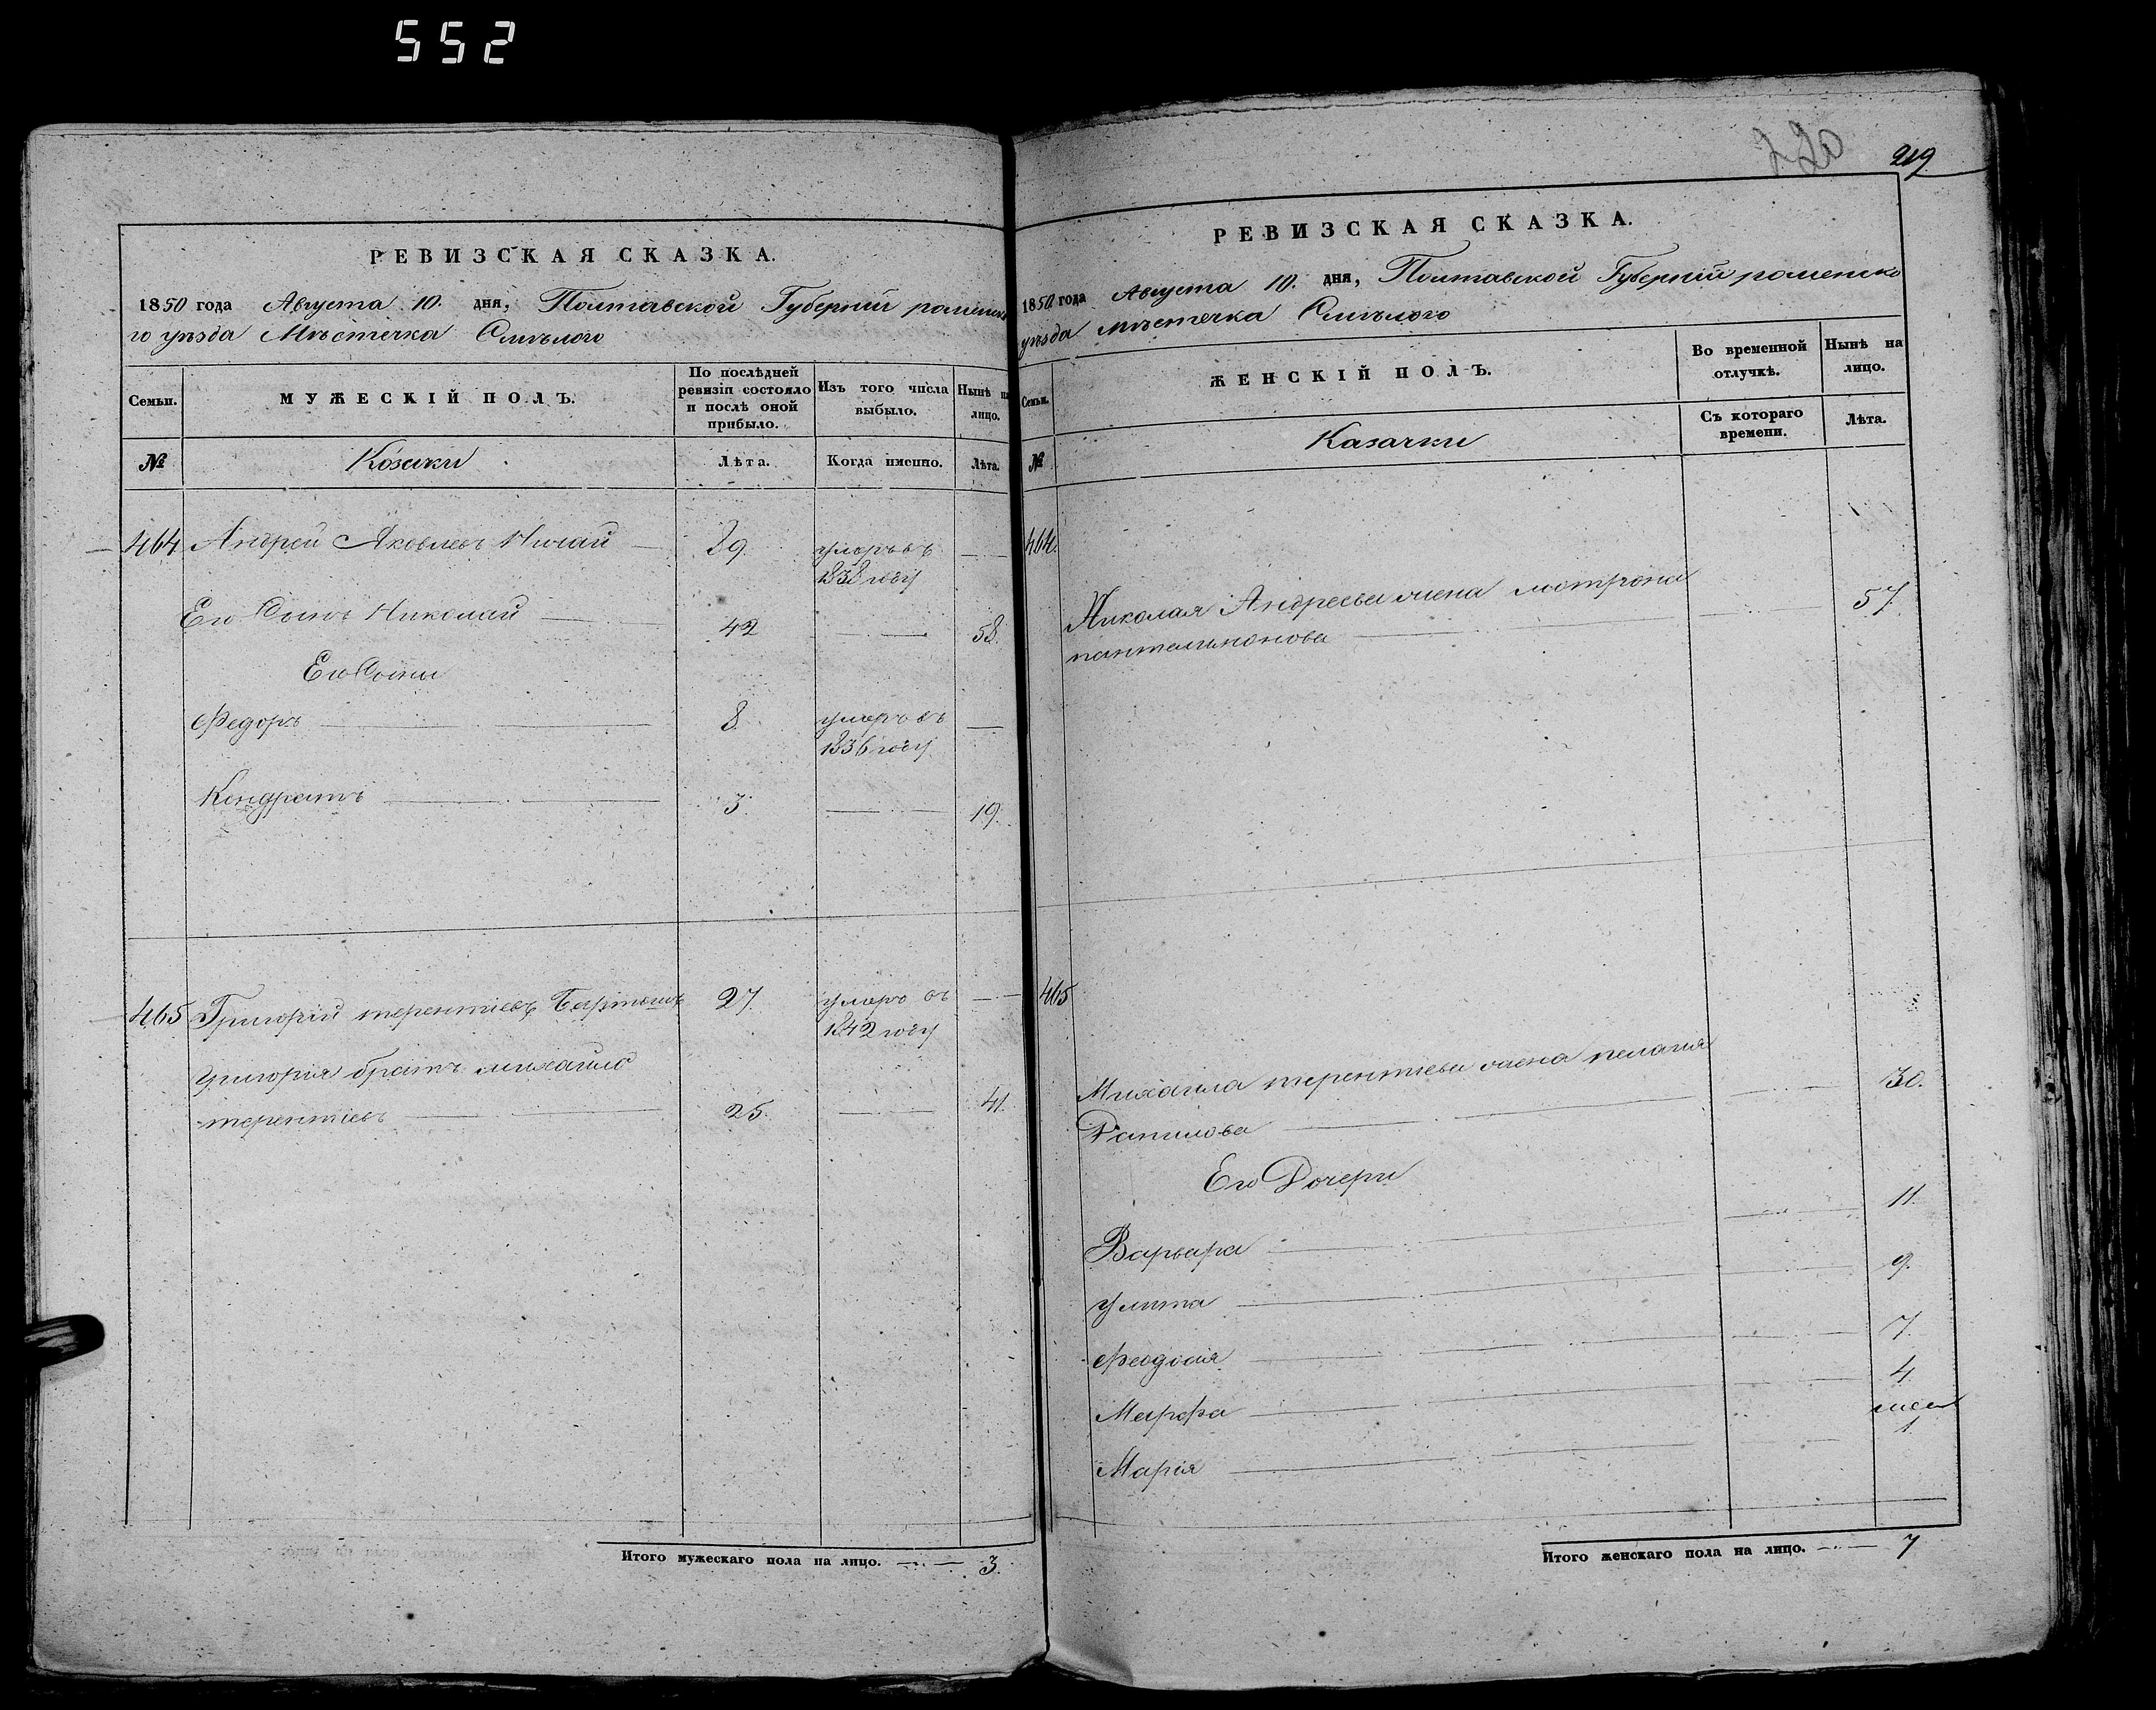 552
РЕВИЗСКАЯ СКАЗКА.
1850 года Августа 10. дня, Полтавской Губерніи роменска
го уѣзда Мѣстечка Смѣлого
Семьи.
МУЖЕСКІЙ ПОЛЪ.
По послѣдней
ревизіи состояло
и послѣ оной
прибыло.
Изъ того числа
выбыло.
Нынѣ на
лицо.
№
Козаки
Лѣта.
Когда именно.
Лѣта.
464 Андрей Яковлевъ 29. умеръ въ
1838 году
Его Сынъ Николай 42 58.
Его Сыны
Федоръ 8. умеръ въ
1836 году
Кондратъ 3. 19.
465 Григорій терентіевъ 27. умеръ въ
1842 году
Григорія братъ михайло
терентіевъ 25. 41.
Итого мужескаго пола на лицо. 3.
220
219
РЕВИЗСКАЯ СКАЗКА.
1850 года Августа 10. дня, Полтавской Губерніи роменско
уѣзда мѣстечка Смѣлого
Семьи.
ЖЕНСКІЙ ПОЛЪ.
Во временной
отлучкѣ.
Нынѣ на
лицо.
№
Казачки
Съ котораго
времени.
Лѣта.
464.
Николая Андреева жена мотрона
пантелимонова 57.
465
Михаила терентіева жена пелагия
Данилова 30.
Его Дочери
Варвара 11.
Улита 9.
Феодосія 7.
Марфа 4.
Марія
1
Итого женскаго пола на лицо. 7